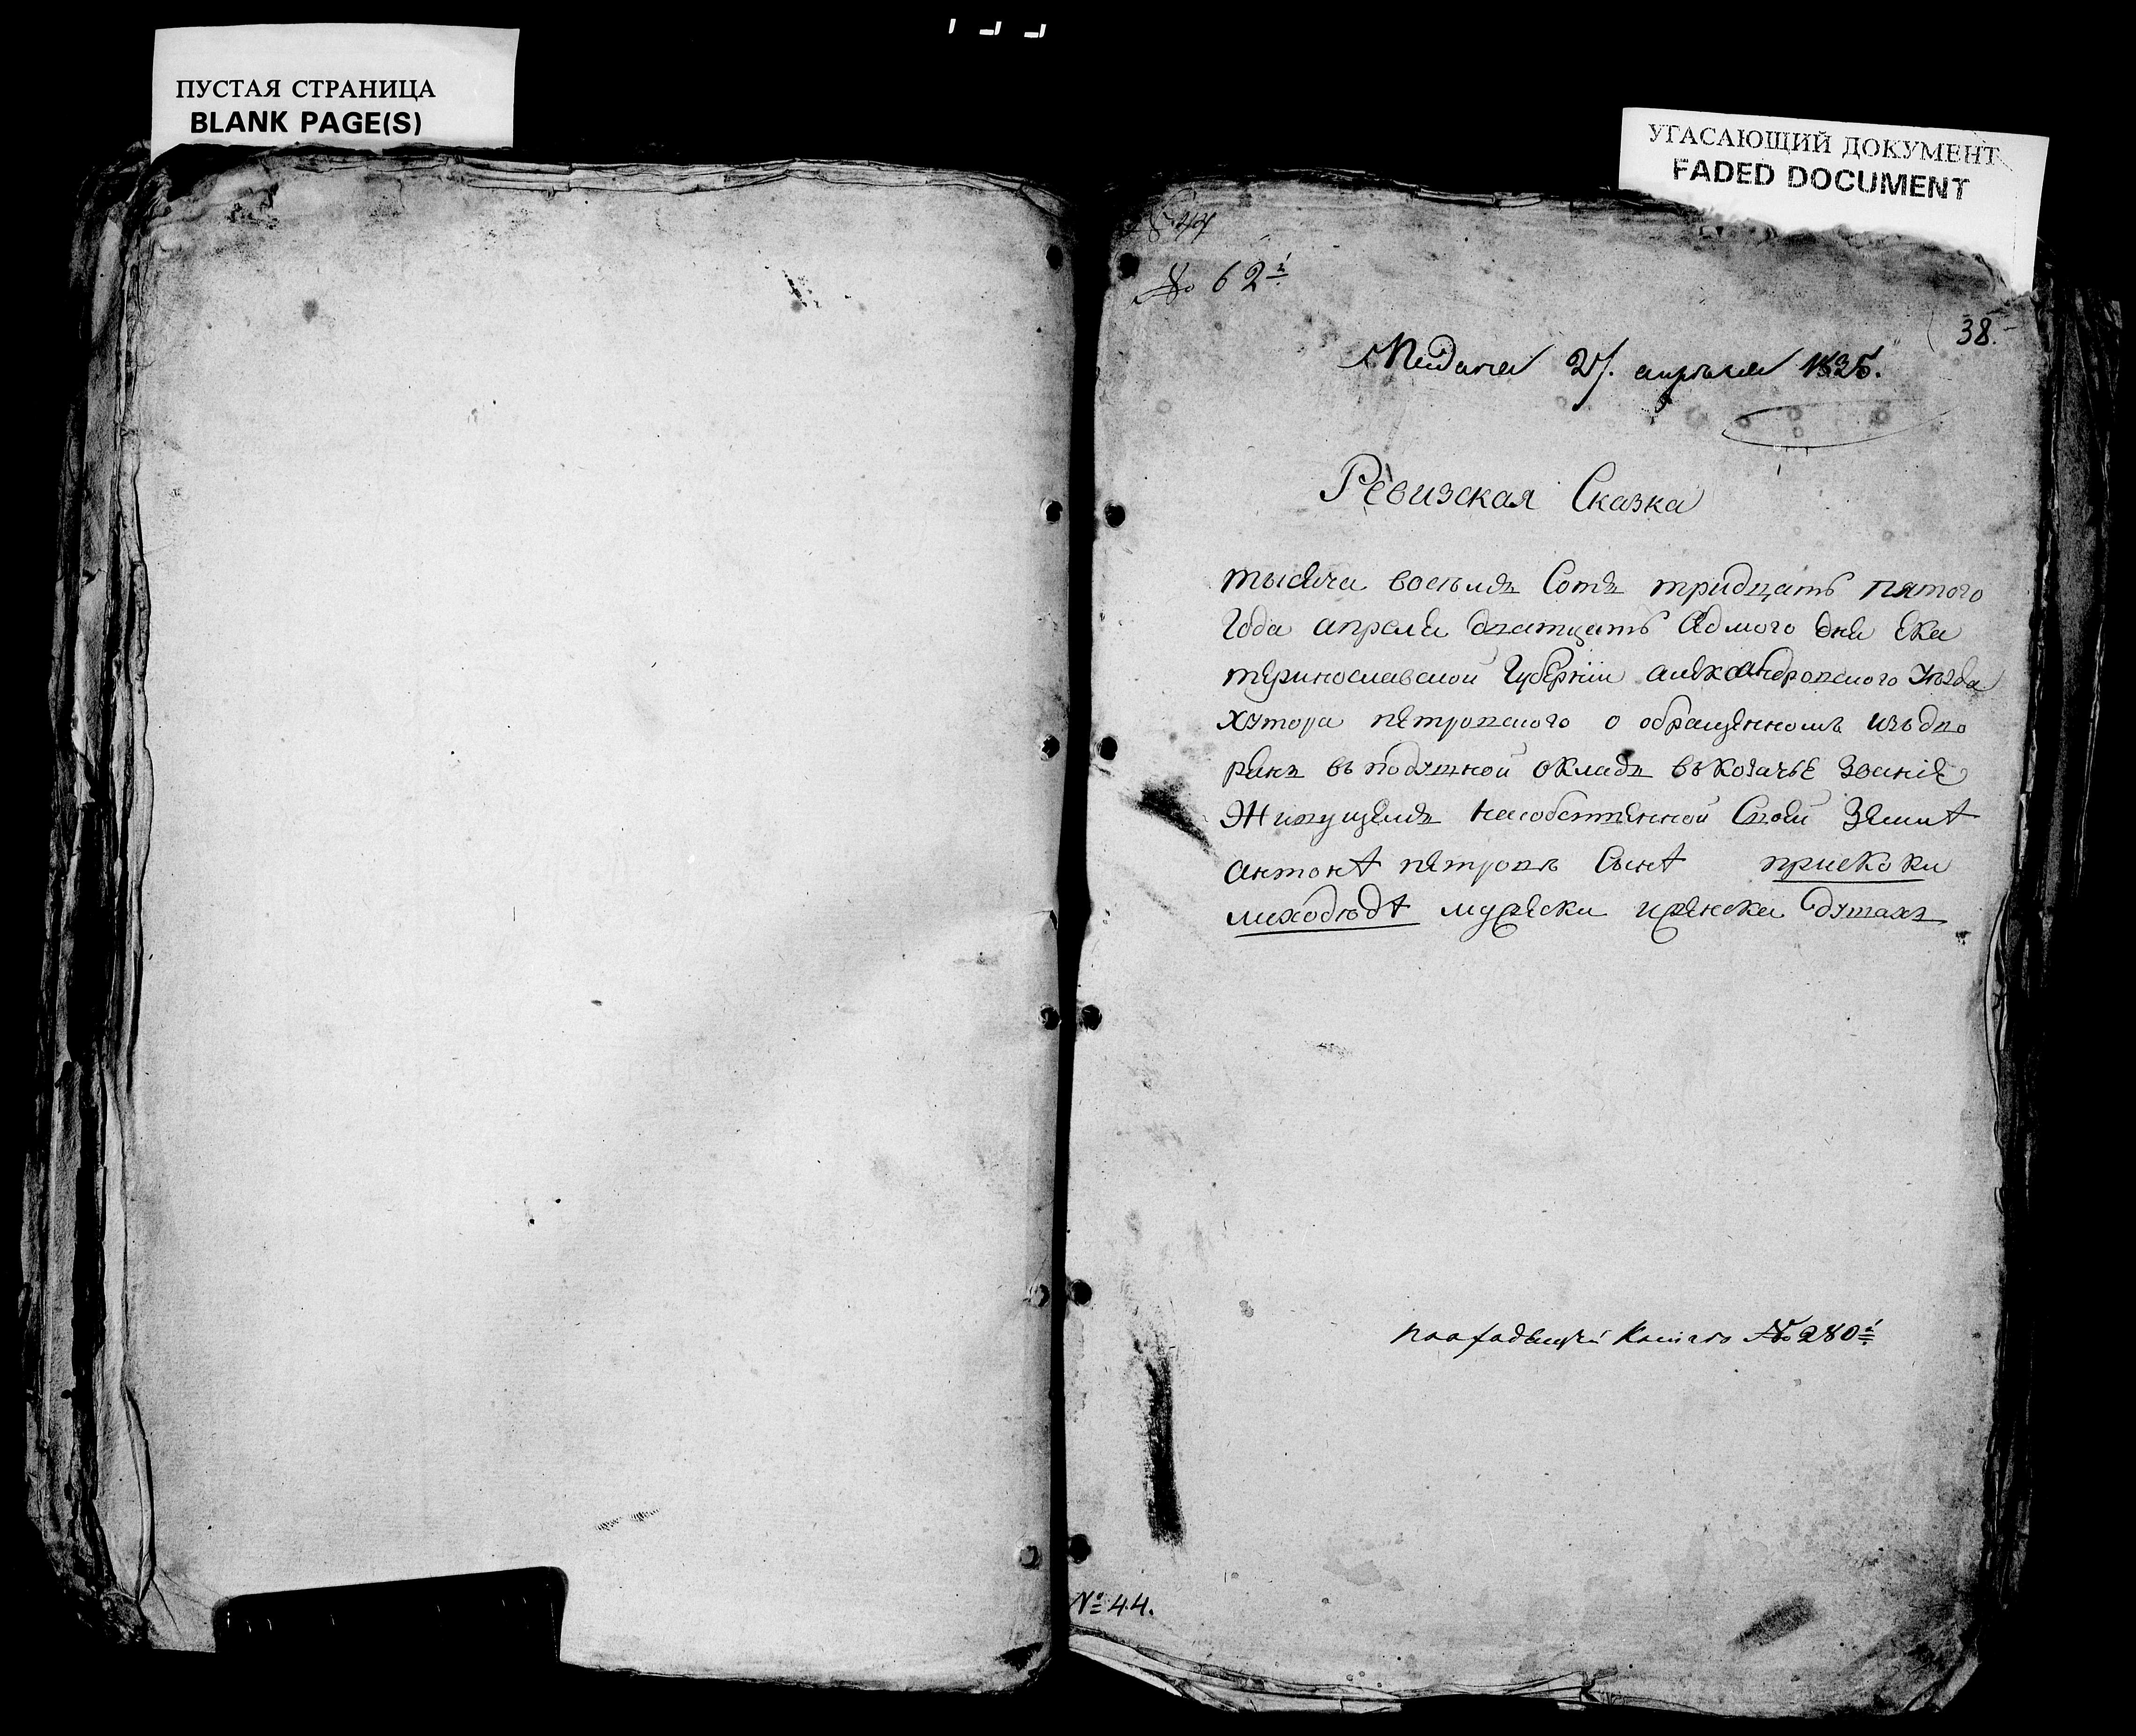 ПУСТАЯ СТРАНИЦА
BLANK PAGE(S)
УГАСАЮЩИЙ ДОКУМЕНТ
FADED DOCUMENT
№ 44
№ 62й
38.
Подана 27. апреля 1835.
Ревизская Сказка
тысяча восьмъ Сотъ тридцать пятого
Года апреля дватцать Седмого дня Ека
теринославской Губернии александровского уезда
хутора петровского о обращенномъ изъ дво
рянъ въ подушной окладъ въ козачье звание
Живущемъ насобственной Своей Земле
антоне петровъ Сыне приско ки
лиходеде мужеска иженска душахъ
по входящей Книге № 280й
№ 44.